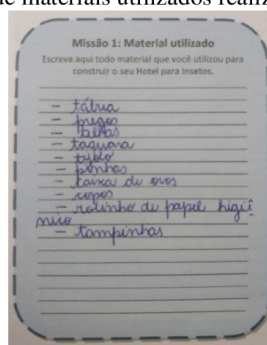 de materiais utilizados realiz
Missão 1: Material utilizado
Escreva aqui todo material que você utilizou para
construir o seu Hotel para insetos.
- tábua
- pregos
- telhas
- taquara
- tijolo
- pinhas
- caixa de ovos
- copos
- rolinho de papel higiê
nico
- tampinhas